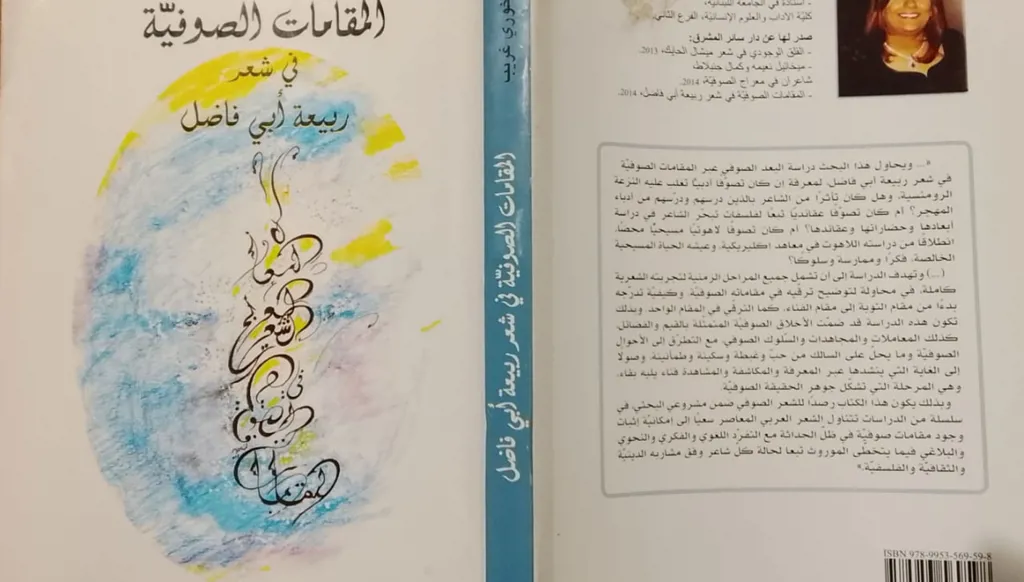 المقامات الصوفيّة
في شعر
ربيعة أبي فاضل
خوري غريب
المقامات الصوفيّة في شعر ربيعة أبي فاضل
- أستاذة في الجامعة اللبنانية،
كليّة الآداب والعلوم الإنسانيّة، الفرع الثاني.
صدر لها عن دار سائر المشرق:
- القلق الوجودي في شعر ميشال الحايك، 2013.
- ميخائيل نعيمه وكمال جنبلاط،
شاعران في معراج الصوفيّة، 2014.
- المقامات الصوفيّة في شعر ربيعة أبي فاضل، 2014.
«... ويحاول هذا البحث دراسة البعد الصوفي عبر المقامات الصوفيّة
في شعر ربيعة أبي فاضل، لمعرفة إن كان تصوّفًا أدبيًّا تغلب عليه النزعة
الرومنسية، وهل كان تأثرًا من الشاعر بالذين درسهم ودرّسهم من أدباء
المهجر؟ أم كان تصوّفًا عقائديًا تبعًا لفلسفاتٍ تبحّر الشاعر في دراسة
أبعادها وحضاراتها وعقائدها؟ أم كان تصوفًا لاهوتيًا مسيحيًّا محضًا،
انطلاقًا من دراسته اللاهوت في معاهد اكليريكية، وعيشه الحياة المسيحية
الخالصة، فكرًا وممارسة وسلوكًا؟
(...) وتهدف الدراسة إلى ان تشمل جميع المراحل الزمنية لتجربته الشعرية
كاملة، في محاولة لتوضيح ترقّيه في مقاماته الصوفيّة، وكيفيّة تدرّجه
بدءًا من مقام التوبة إلى مقام الفناء، كما الترقّي في المقام الواحد، وبذلك
تكون هذه الدراسة قد ضمّت الأخلاق الصوفيّة المتمثلة بالقيم والفضائل،
كذلك المعاملات والمجاهدات والسّلوك الصوفي، مع التطرّق إلى الأحوال
الصوفيّة وما يحلّ على السالك من حبّ وغبطة وسكينة وطمأنينة، وصولًا
إلى الغاية التي ينشدها عبر المعرفة والمكاشفة والمشاهدة فناء يليه بقاء،
وهي المرحلة التي تشكّل جوهر الحقيقة الصوفيّة.
وبذلك يكون هذا الكتاب رصدًا للشعر الصوفي ضمن مشروعي البحثي في
سلسلة من الدراسات تتناول الشعر العربي المعاصر سعيًا إلى إمكانيّة إثبات
وجود مقامات صوفيّة في ظلّ الحداثة مع التفرّد اللغوي والفكري والنحوي
والبلاغي فيما يتخطى الموروث تبعا لحالة كل شاعر وفق مشاربه الدينيّة
والثقافيّة والفلسفيّة.»
ISBN 978-9953-569-59-8